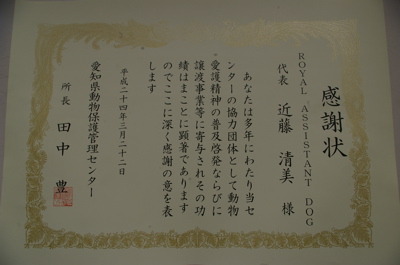 感謝状
ROYAL ASSISTANT DOG
代表 近藤 清美 様
あなたは多年にわたり当セ
ンターの協力団体として動物
愛護精神の普及啓発ならびに
譲渡事業等に寄与されその功
績はまことに顕著であります
のでここに深く感謝の意を表
します
平成二十四年三月二十二日
愛知県動物保護管理センター
所長 田中 豊